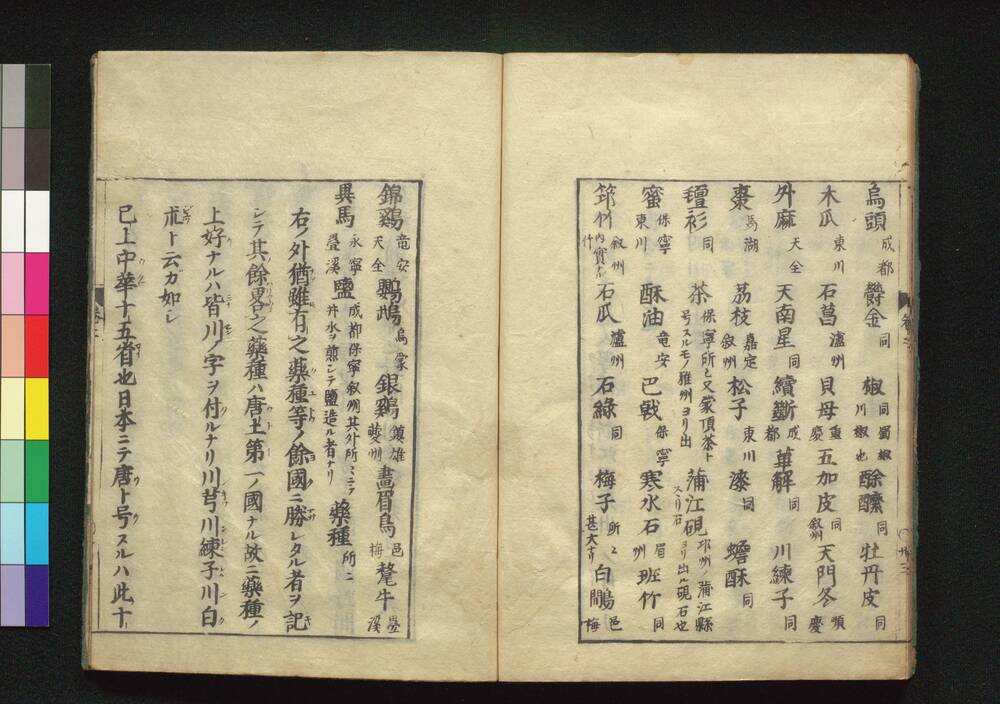 烏頭 成都 欝金 同 椒 同蜀椒川椒也 酴醿 同 牡丹皮 同
木瓜 東川 石菖 瀘州 貝母 重慶 五加皮 同叙州 天門冬 順慶
外麻 天全 天南星 同 續斷 成都 萆解 同 川練子 同
棗 馬湖 茘枝 嘉定叙州 松子 東川 漆 同 蟾酥 同
氊衫 同 茶 保寧所〻又蒙頂茶ト号スルモノ雅州ヨリ出 蒲江硯 邛州ノ蒲江縣ヨリ出ル硯石也
蜜 保寧東川 酥油 竜安 巴戟 保寧 寒水石 眉州 班竹 同
筇竹 叙州 石瓜 瀘州 石綠 同 梅子 所〻甚大ナリ 白鷳 邑梅
錦鷄 竜安天全 鸚鵡 烏蒙 銀鷄 鎮雄夔州 畫眉鳥 邑梅 犛牛 疊溪
異馬 永寧疊溪 鹽 成都保寧叙州其外所〻ニテ井水ヲ煎シテ鹽造ル者ナリ 藥種 所〻ニ
右ノ外猶雖有之藥種等ノ餘國ニ勝レタル者ヲ記
シテ其餘畧之藥種ハ唐土第一ノ國ナル故ニ藥種ノ
上好ナルハ皆川ノ字ヲ付ルナリ川芎川練子川白
朮ト云ガ如シ
已上中華十五省也日本ニテ唐ト号スルハ此十